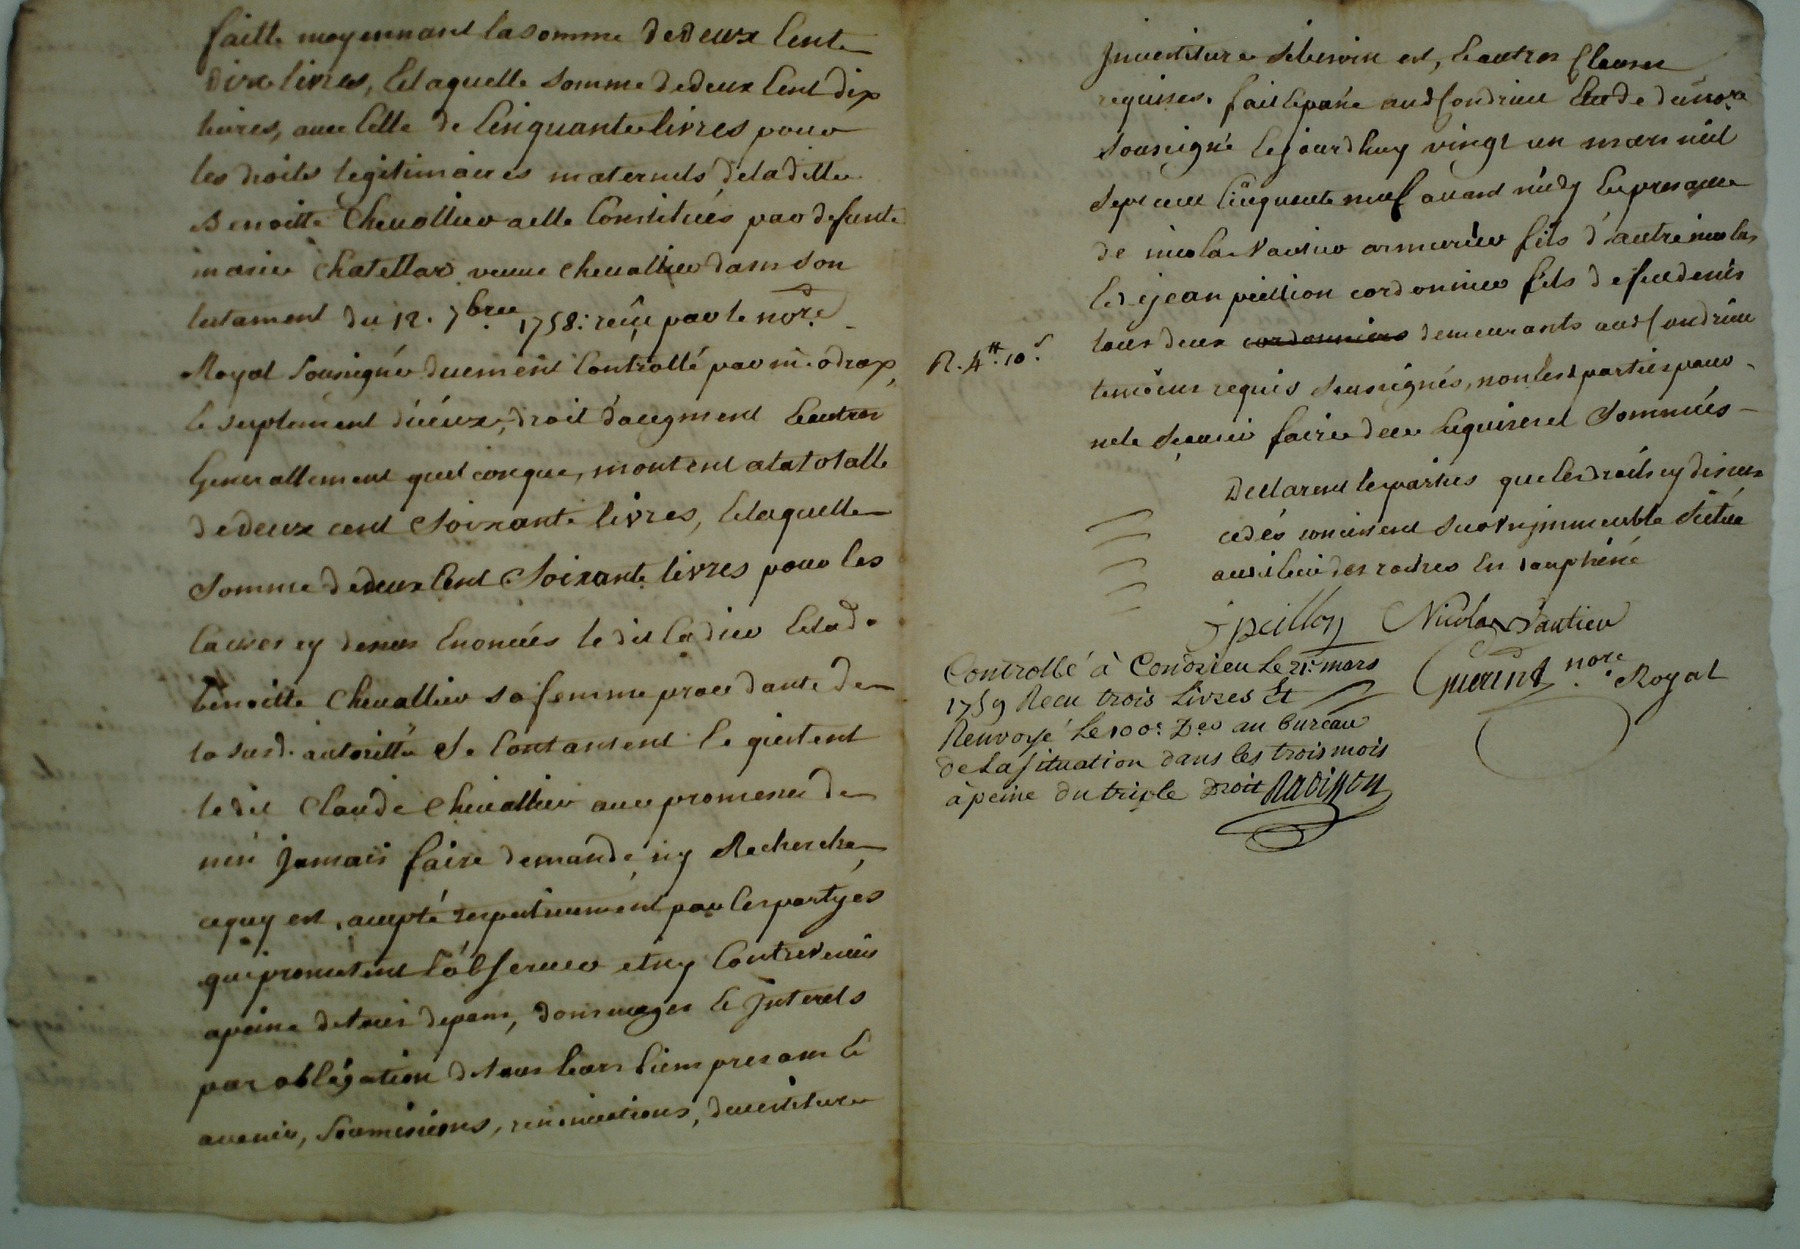 faitte moyennant la somme de deux cent
dix livres, & laquelle somme de deux cent dix
livres, avec celle de cinquante livres pour
les droits legitimaires maternels de laditte
Benoitte Chevallier a elle constitués par defunte
marie Chatellar veuve chevallier dans son
testament du 12. 7bre 1758: reçu par le nore
Royal soussigné duement controllé par m. odrax,
le suplement d'iceux, droit d'augment & autres
generallement quelconque, montent a la totalle
de deux cent soixante livres, & laquelle
somme de deux cent soixante livres pour les
causes cy dessus enoncées le dit Cadier & lad.
benoitte chevallier sa femme procedante de
la susd. autoritté se contantent & quittent
le dit Claude chevallier avec promesse de
n'en jamais faire demande ny Recherche
ce quy est accepté respectivement par les partyes
qui promettent l'observer et n'y contrevenir
a peine de tous depens, dommages & Interets
par obligation de tous leurs biens presans &
avenir, soumissions, renonciations, devestiture
Investiture si besoin est, & autres clauses
requises. fait & passé aud Condrieu Etude du nore
soussigné cejourdhuy vingt un mars mil
sept cent cinquante neuf avant midy en presance
de nicolas Vautier armurier fils d'autre nicolas
& de jean peillion cordonnier fils de feu denis
tous deux cordonniers demeurants aud Condrieu
R. 4tt. 10s.
temoins requis soussignés, non les parties pour
ne le sçavoir faire de ce enquises et sommées
Declarent les parties que les droits cy dessus
cedés consistent sur un jmmeuble situé
au lieu des roches en dauphiné
j peillon Nicolas Vautier
Guerin nore Royal
Controllé à Condrieu le 21e mars
1759 Recu trois Livres Et
Renvoyé le 100e Der au bureau
de la situation dans les trois mois
à peine du triple Droit Ravisson